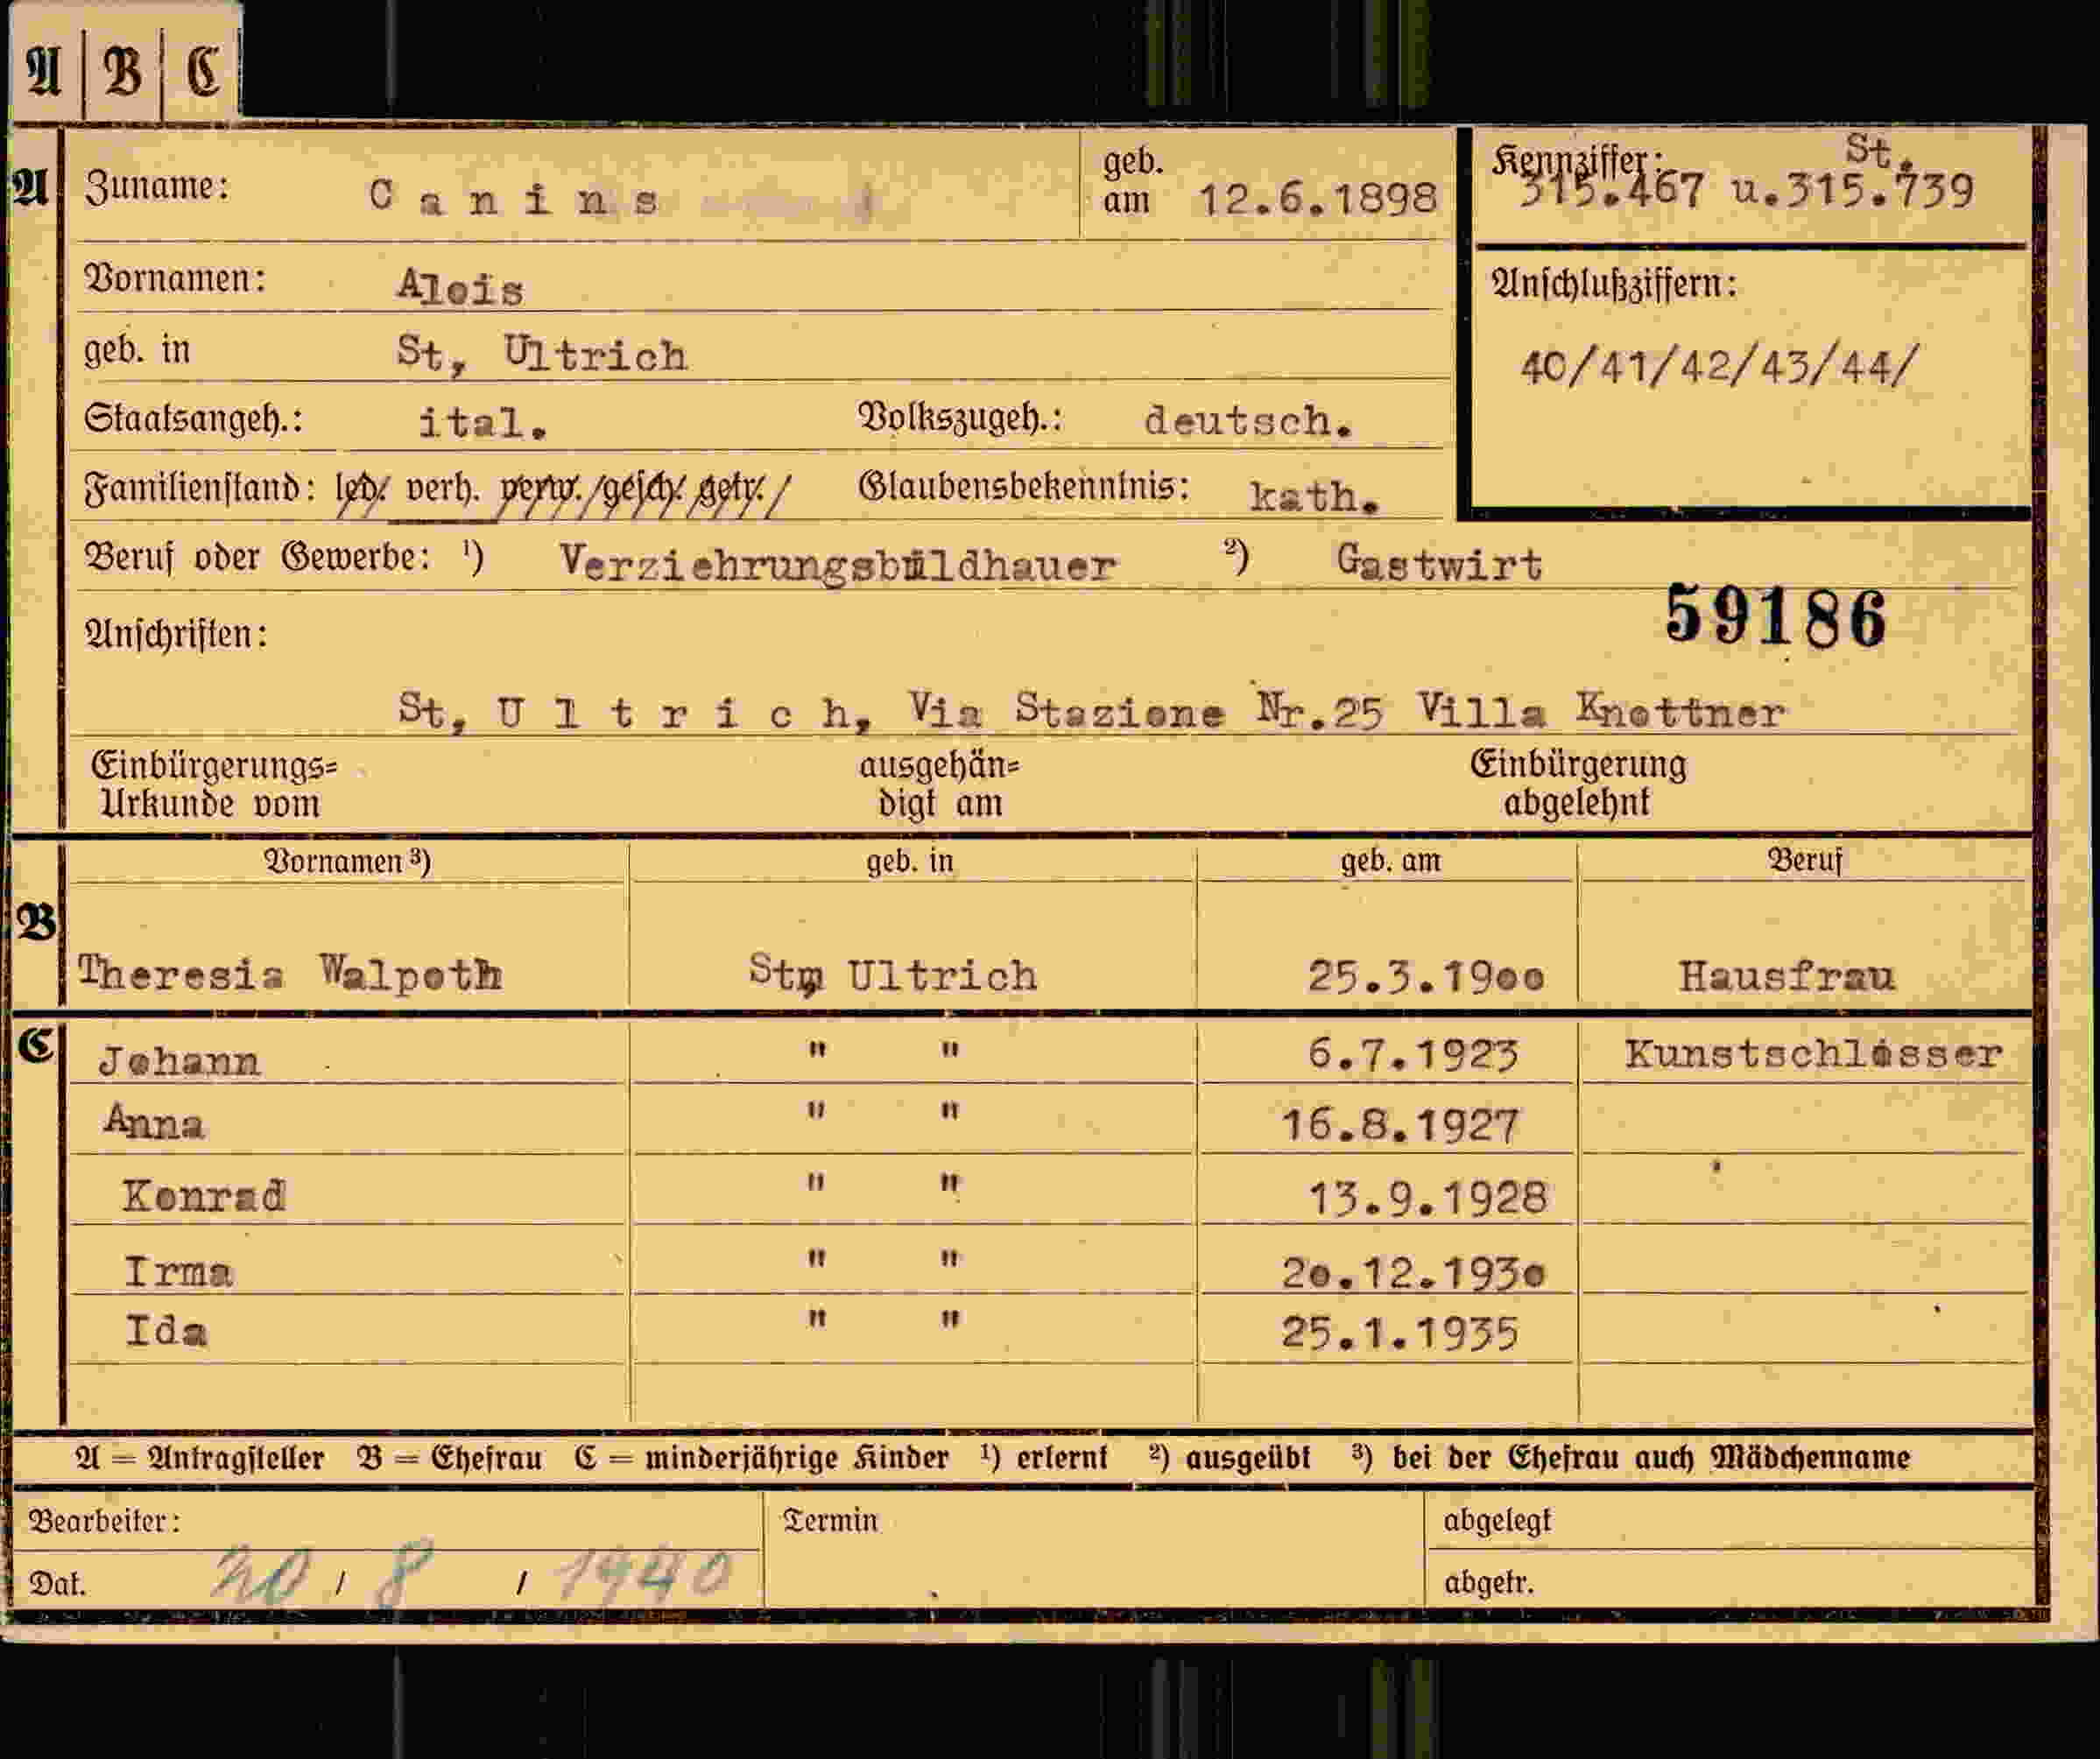 A B C
A Zuname: Canins geb. am 12.6.1898
Kennziffer: St.
315.467 u.315.739
Vornamen: Alois
Anschlußziffern:
geb. in St, Ultrich
40/41/42/43/44/
Staatsangeh.: ital. Volkszugeh.: deutsch.
Familienstand: led. verh. verw. gesch. getr. Glaubensbekenntnis: kath.
Beruf oder Gewerbe: ¹) Verziehrungsbildhauer ²) Gastwirt
59186
Anschriften:
St, Ultrich, Via Stazione Nr.25 Villa Knottner
Einbürgerungs= ausgehän= Einbürgerung
Urkunde vom digt am abgelehnt
Vornamen ³) geb. in geb. am Beruf
B
Theresia Walpoth St, Ultrich 25.3.1900 Hausfrau
C Johann " " 6.7.1923 Kunstschlosser
Anna " " 16.8.1927
Konrad " " 13.9.1928
Irma " " 20.12.1930
Ida " " 25.1.1935
A = Antragsteller B = Ehefrau C = minderjährige Kinder ¹) erlernt ²) ausgeübt ³) bei der Ehefrau auch Mädchenname
Bearbeiter: Termin abgelegt
Dat. 20 / 8 / 1940 abgetr.